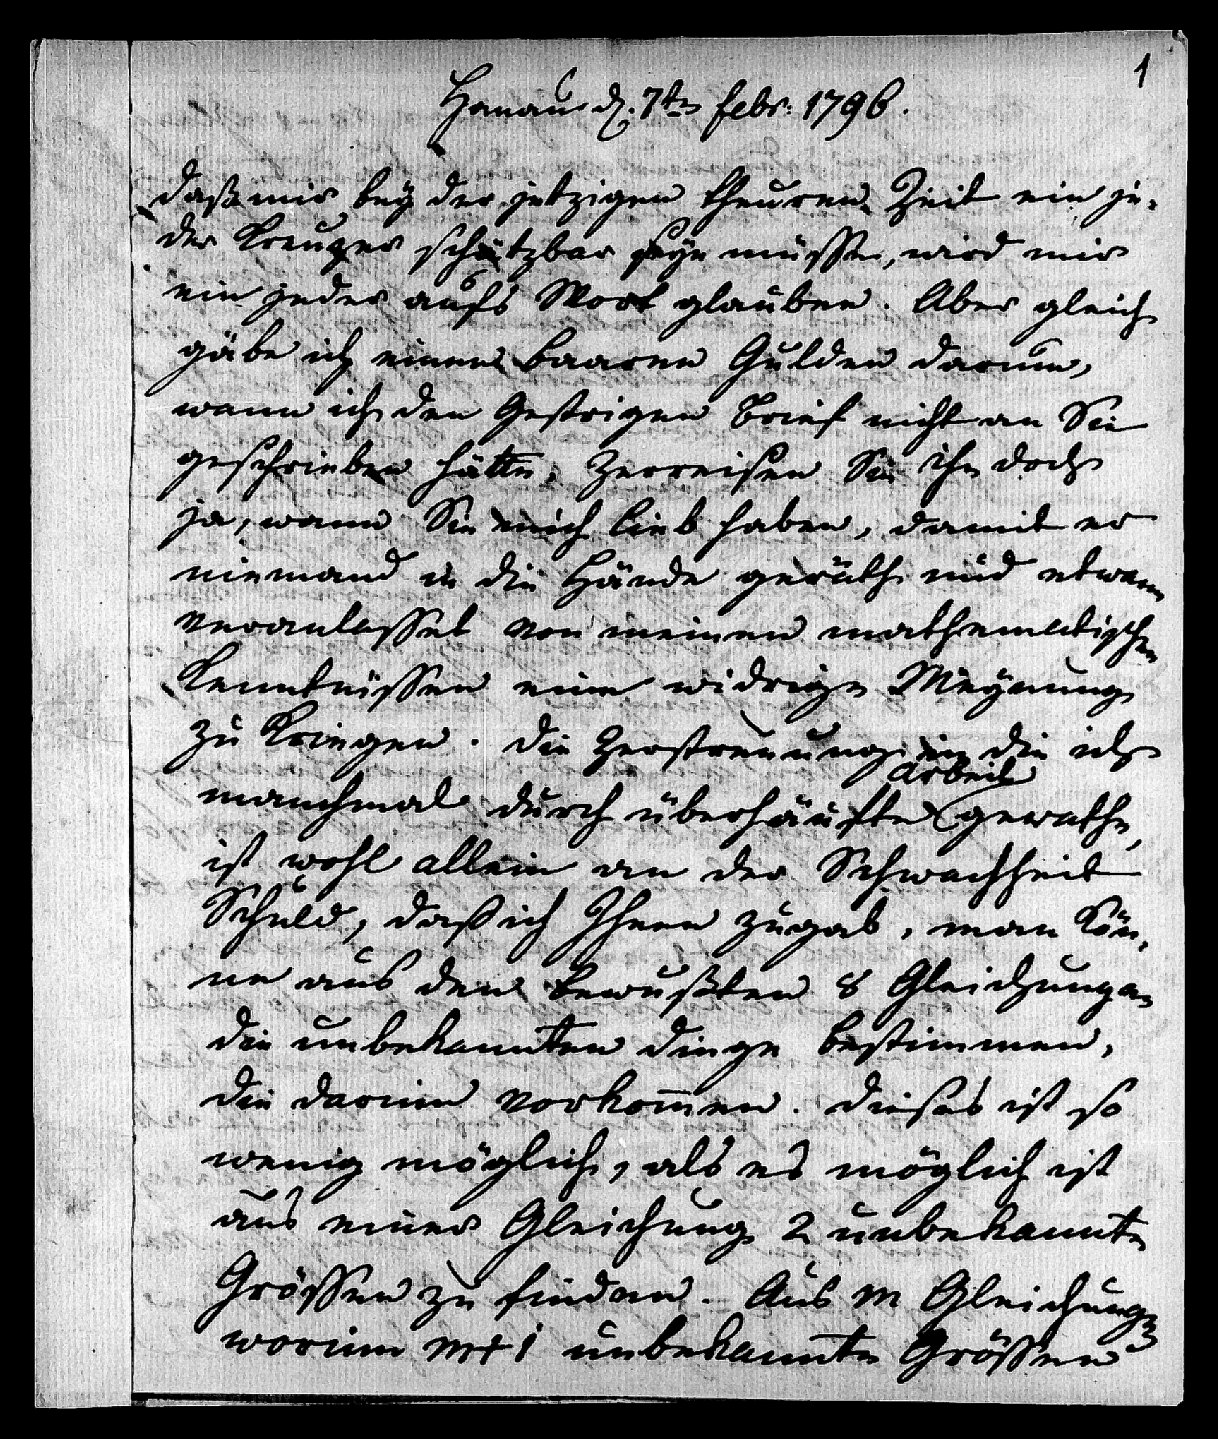 1
Hanau d. 7ten Febr: 1796.
Daß mir bey der jetzigen theuren Zeit ein je-
der Kreuzer schätzbar seyn müsse, wird mir
ein jeder aufs Wort glauben. Aber gleich
gäbe ich einen baaren Gulden darum,
wann ich den Gestrigen Brief nicht an Sie
geschrieben hätte. Zerreisen Sie ihn doch
ja, wann Sie mich lieb haben, damit er
niemand in die Hände geräth und etwann
veranlasset von meinen mathematischen
Kenntnissen eine widrige Meynung
zu kriegen. Die Zerstreuung in die ich
manchmal durch überhäufte Arbeit gerathe,
ist wohl allein an der Schwachheit
Schuld, daß ich Ihnen zugab, man kön-
ne aus den bewußten 8 Gleichungen
die unbekannten Dinge bestimmen,
die darinn vorkommen. Dieses ist so
wenig möglich, als es möglich ist
aus einer Gleichung 2 unbekannte
Grössen zu finden. Aus m Gleichungen
worinn m+1 unbekannte Grössen